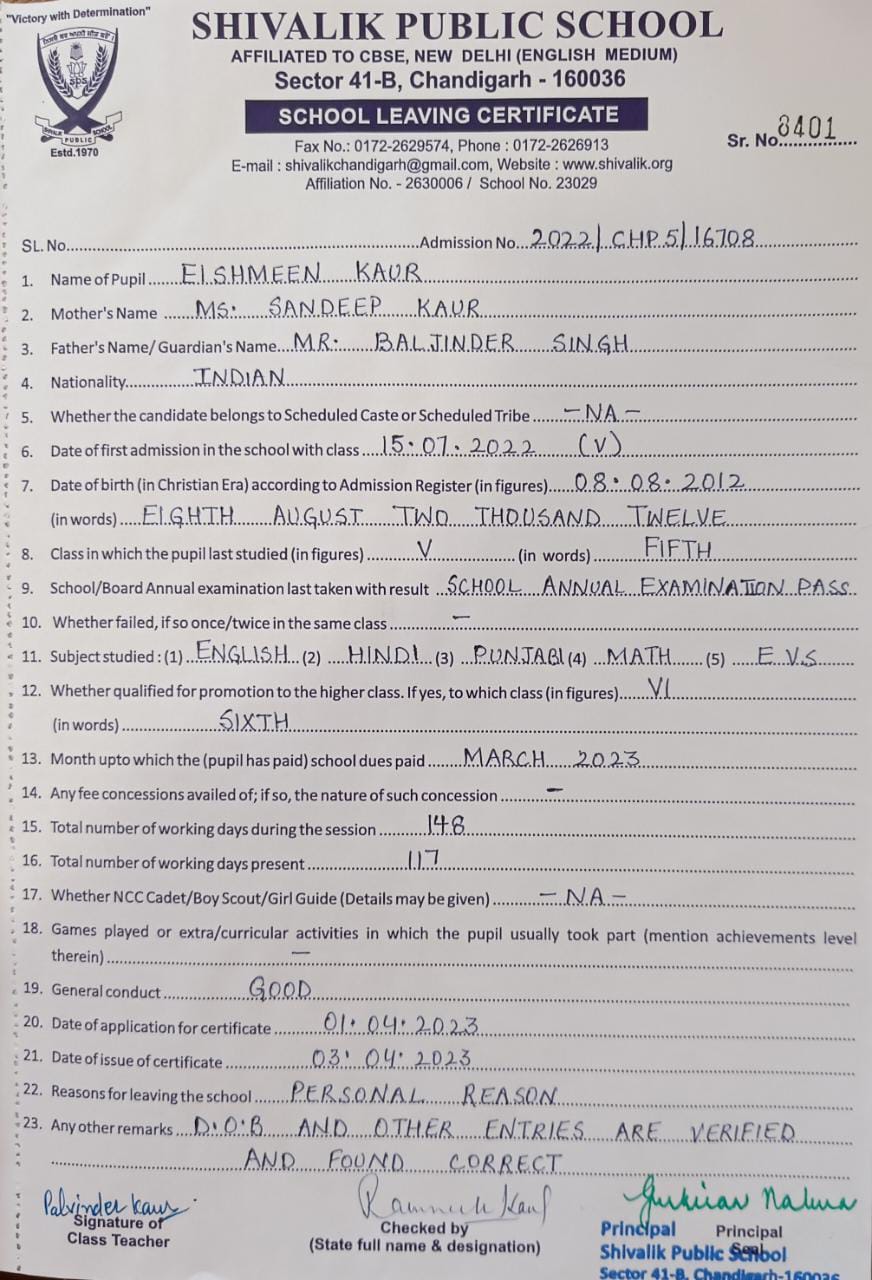 "Victory with Determination"
SHIVALIK PUBLIC SCHOOL
AFFILIATED TO CBSE, NEW DELHI (ENGLISH MEDIUM)
Sector 41-B, Chandigarh - 160036
SCHOOL LEAVING CERTIFICATE
SPS
SHIVALIK PUBLIC SCHOOL
Estd.1970
Sr. No. 8401
Fax No.: 0172-2629574, Phone : 0172-2626913
E-mail : shivalikchandigarh@gmail.com, Website : www.shivalik.org
Affiliation No. - 2630006 / School No. 23029
SL. No. Admission No. 2022/CHP5/16708
1. Name of Pupil EISHMEEN KAUR
2. Mother's Name MS. SANDEEP KAUR
3. Father's Name/ Guardian's Name MR. BALJINDER SINGH
4. Nationality INDIAN
5. Whether the candidate belongs to Scheduled Caste or Scheduled Tribe -NA-
6. Date of first admission in the school with class 15.07.2022 (V)
7. Date of birth (in Christian Era) according to Admission Register (in figures) 08.08.2012
(in words) EIGHTH AUGUST TWO THOUSAND TWELVE
8. Class in which the pupil last studied (in figures) V (in words) FIFTH
9. School/Board Annual examination last taken with result SCHOOL ANNUAL EXAMINATION PASS
10. Whether failed, if so once/twice in the same class -
11. Subject studied : (1) ENGLISH (2) HINDI (3) PUNJABI (4) MATH (5) E.V.S
12. Whether qualified for promotion to the higher class. If yes, to which class (in figures) VI
(in words) SIXTH
13. Month upto which the (pupil has paid) school dues paid MARCH 2023
14. Any fee concessions availed of; if so, the nature of such concession -
15. Total number of working days during the session 148
16. Total number of working days present 117
17. Whether NCC Cadet/Boy Scout/Girl Guide (Details may be given) -NA-
18. Games played or extra/curricular activities in which the pupil usually took part (mention achievements level
therein) -
19. General conduct GOOD
20. Date of application for certificate 01.04.2023
21. Date of issue of certificate 03.04.2023
22. Reasons for leaving the school PERSONAL REASON
23. Any other remarks D.O.B AND OTHER ENTRIES ARE VERIFIED
AND FOUND CORRECT
Palvinder Kaur
Signature of
Class Teacher
Kaur
Checked by
(State full name & designation)
Principal
Seal
Principal
Shivalik Public School
Sector 41-B, Chandigarh-160036